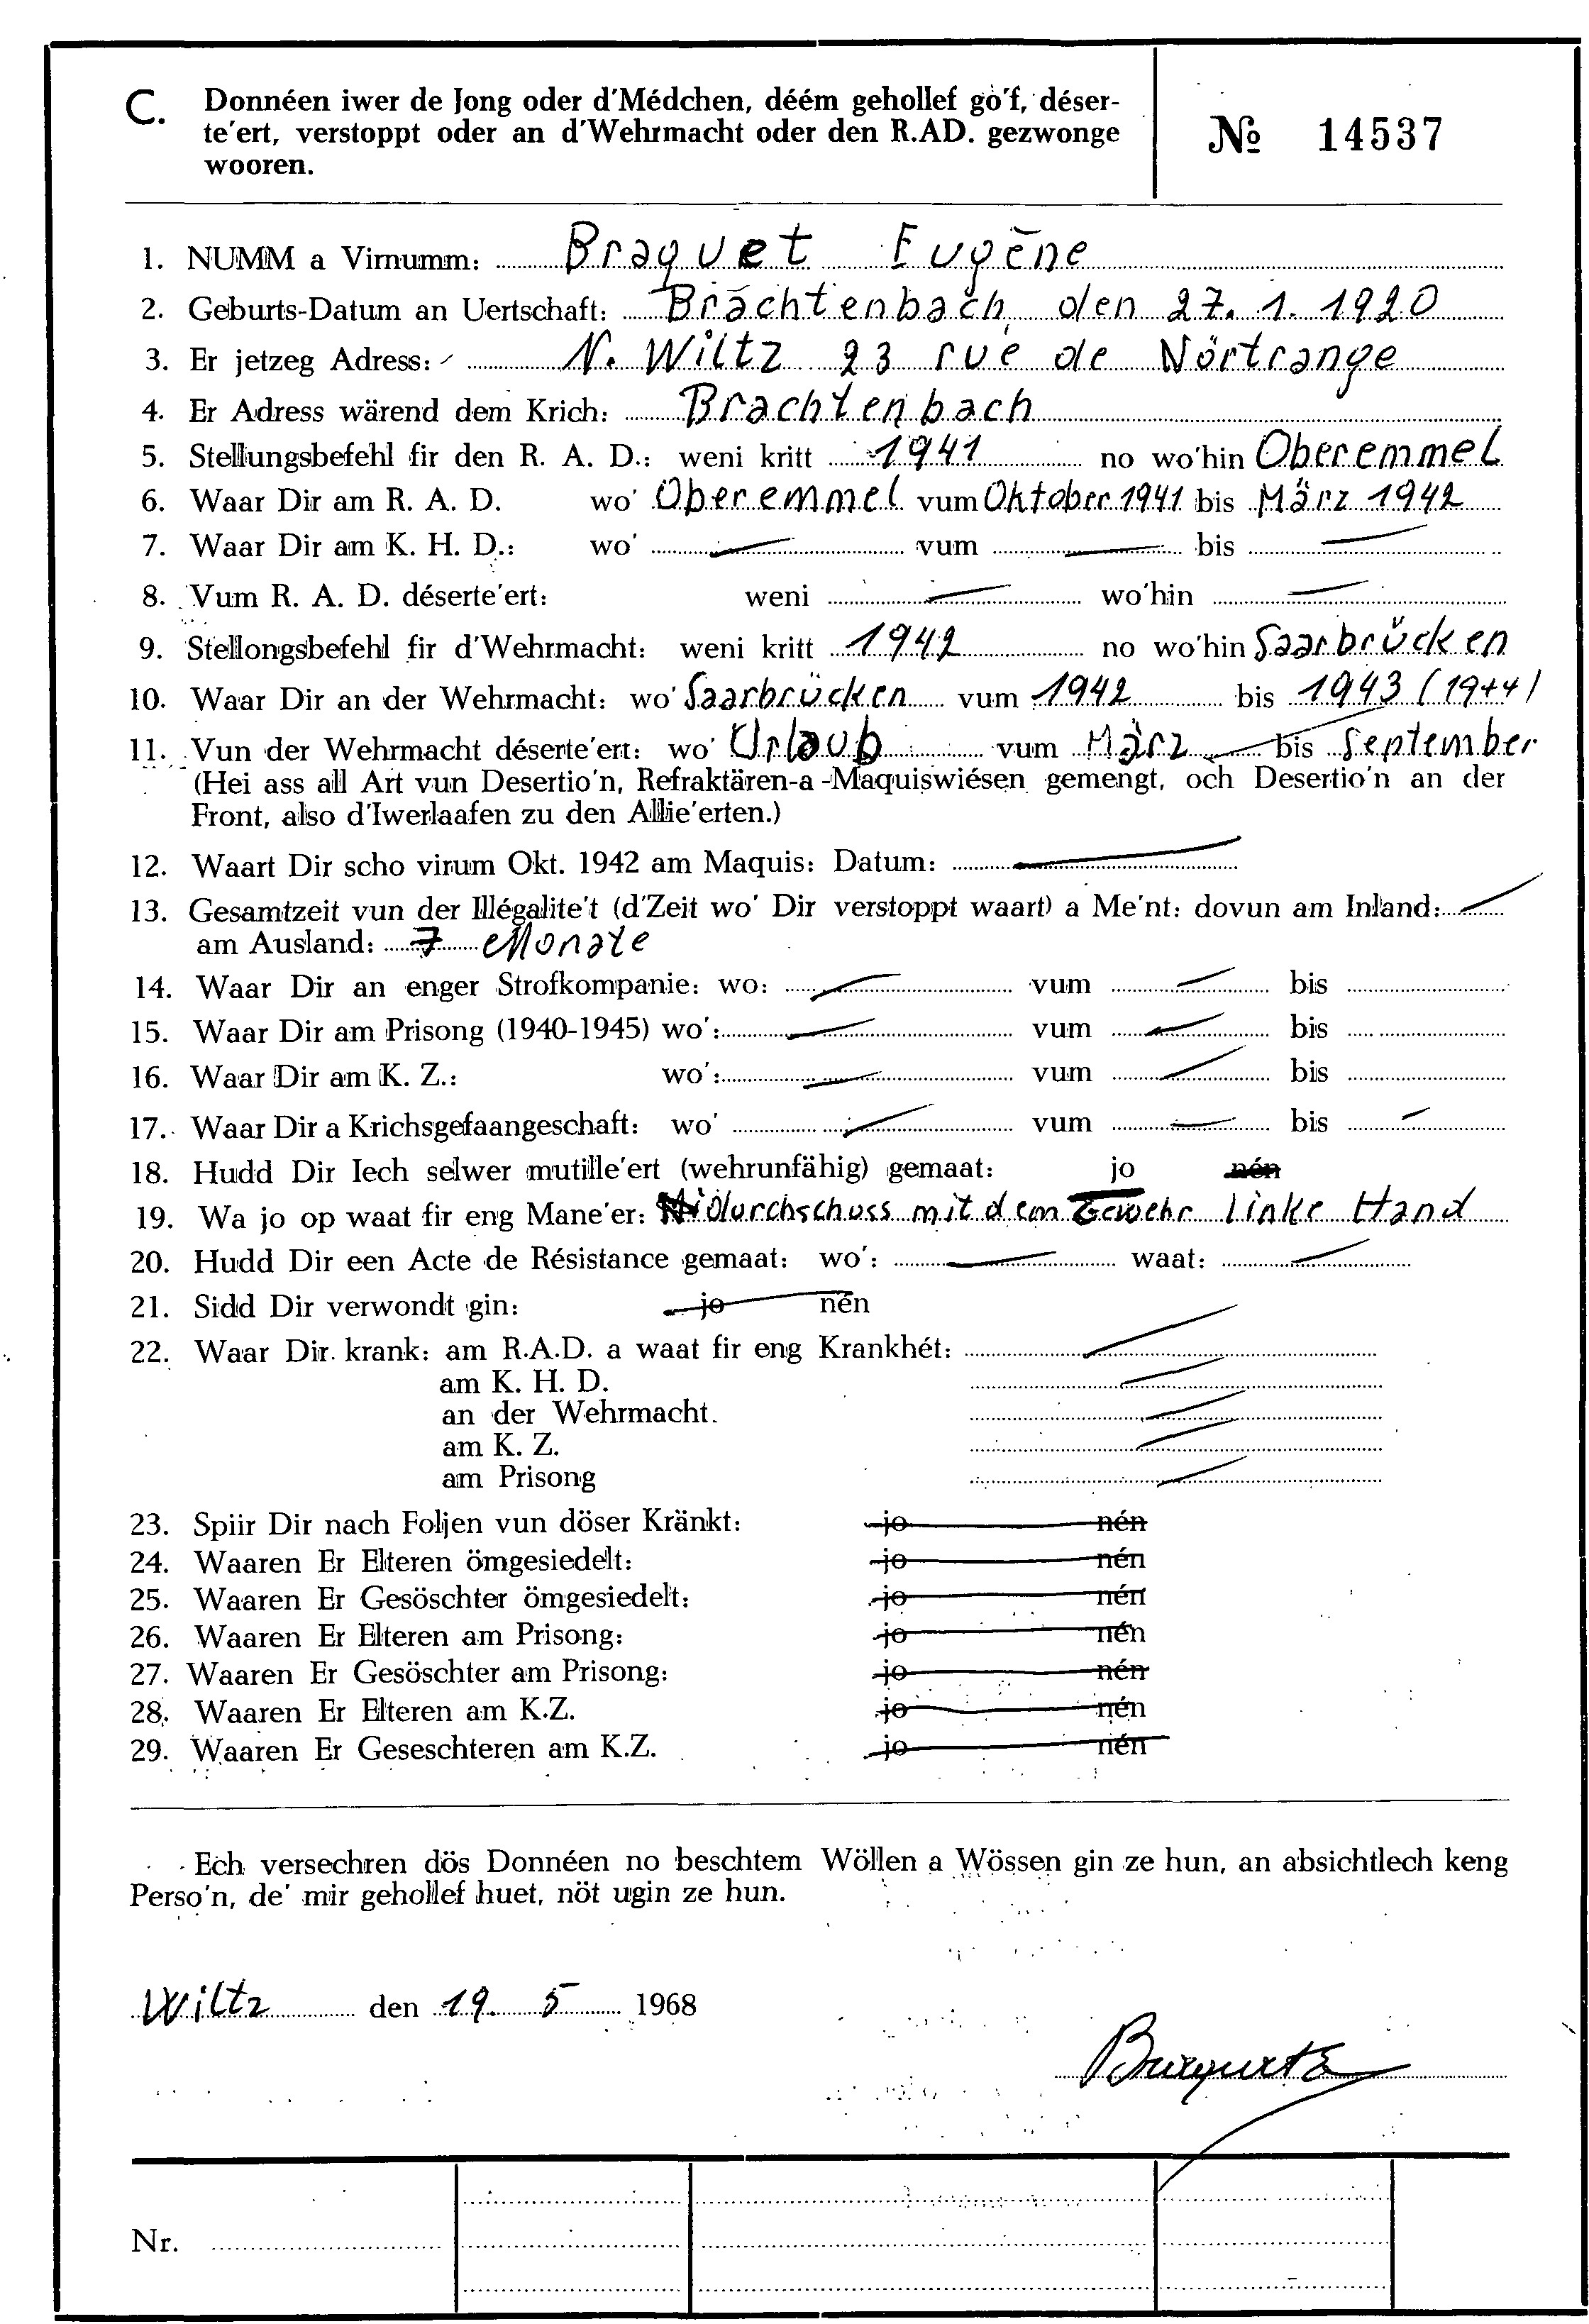 C. Donnéen iwer de Jong oder d'Médchen, déém gehollef go'f, déser-
te'ert, verstoppt oder an d'Wehrmacht oder den R.AD. gezwonge
wooren.
№ 14537
1. NUMM a Virnumm: Braquet Eugène
2. Geburts-Datum an Uertschaft: Brachtenbach den 27. 1. 1920
3. Er jetzeg Adress: N. Wiltz 23 rue de Nörtrange
4. Er Adress wärend dem Krich: Brachtenbach
5. Stellungsbefehl fir den R. A. D.: weni kritt 1941 no wo'hin Oberemmel
6. Waar Dir am R. A. D. wo' Oberemmel vum Oktober 1941 bis März 1942
7. Waar Dir am K. H. D.: wo' — vum — bis —
8. Vum R. A. D. déserte'ert: weni — wo'hin —
9. Stellongsbefehl fir d'Wehrmacht: weni kritt 1942 no wo'hin Saarbrücken
10. Waar Dir an der Wehrmacht: wo' Saarbrücken vum 1942 bis 1943 (1944)
11. Vun der Wehrmacht déserte'ert: wo' Urlaub vum März bis September
(Hei ass all Art vun Desertio'n, Refraktären-a -Maquiswiésen gemengt, och Desertio'n an der
Front, also d'Iwerlaafen zu den Allie'erten.)
12. Waart Dir scho virum Okt. 1942 am Maquis: Datum: —
13. Gesamtzeit vun der Illégalite't (d'Zeit wo' Dir verstoppt waart) a Me'nt: dovun am Inland: —
am Ausland: 7 Monate
14. Waar Dir an enger Strofkompanie: wo: — vum — bis
15. Waar Dir am Prisong (1940-1945) wo': — vum — bis
16. Waar Dir am K. Z.: wo': — vum — bis
17. Waar Dir a Krichsgefaangeschaft: wo' — vum — bis —
18. Hudd Dir Iech selwer mutille'ert (wehrunfähig) gemaat: jo nén
19. Wa jo op waat fir eng Mane'er: durchschuss mit dem Gewehr linke Hand
20. Hudd Dir een Acte de Résistance gemaat: wo': — waat: —
21. Sidd Dir verwondt gin: jo nén
22. Waar Dir krank: am R.A.D. a waat fir eng Krankhét: —
am K. H. D. —
an der Wehrmacht. —
am K. Z. —
am Prisong —
23. Spiir Dir nach Foljen vun döser Kränkt: jo nén
24. Waaren Er Elteren ömgesiedelt: jo nén
25. Waaren Er Gesöschter ömgesiedelt: jo nén
26. Waaren Er Elteren am Prisong: jo nén
27. Waaren Er Gesöschter am Prisong: jo nén
28. Waaren Er Elteren am K.Z. jo nén
29. Waaren Er Geseschteren am K.Z. jo nén
Ech versechren dös Donnéen no beschtem Wöllen a Wössen gin ze hun, an absichtlech keng
Perso'n, de' mir gehollef huet, nöt ugin ze hun.
Wiltz den 19. 5 1968
Nr.